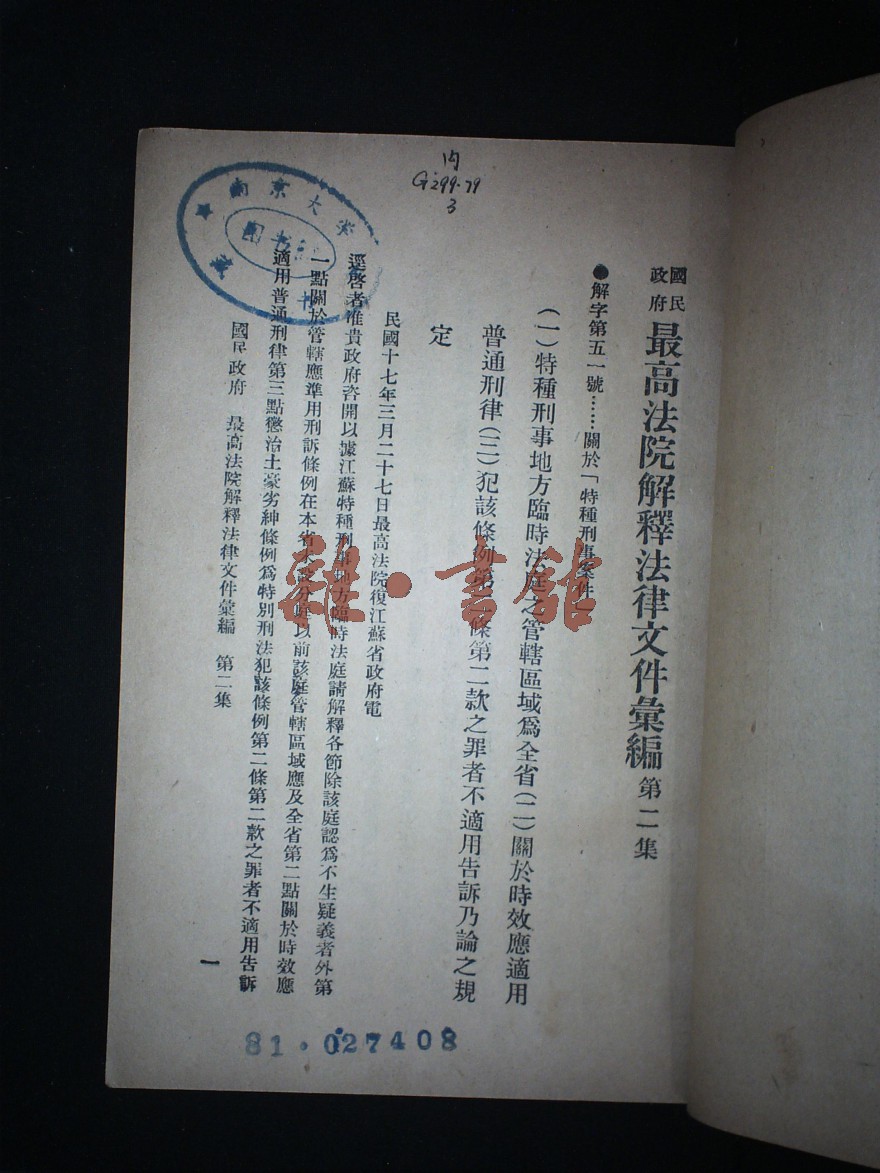 國民
政府
最高法院解釋法律文件彙編 第二集
●解字第五一號……關於「特種刑事案件」
(一)特種刑事地方臨時法庭之管轄區域爲全省(二)關於時效應適用
普通刑律(三)犯該條例第二條第二款之罪者不適用告訴乃論之規
定
民國十七年三月二十七日最高法院復江蘇省政府電
逕啓者准貴政府咨開以據江蘇特種刑事地方臨時法庭請解釋各節除該庭認爲不生疑義者外第
一點關於管轄應準用刑訴條例在本省未設分庭以前該庭管轄區域應及全省第二點關於時效應
適用普通刑律第三點懲治土豪劣紳條例爲特別刑法犯該條例第二條第二款之罪者不適用告訴
國民政府 最高法院解釋法律文件彙編 第二集
一
內
G299.79
3
南京大学
图书馆
藏书
81.027408
雜·書館